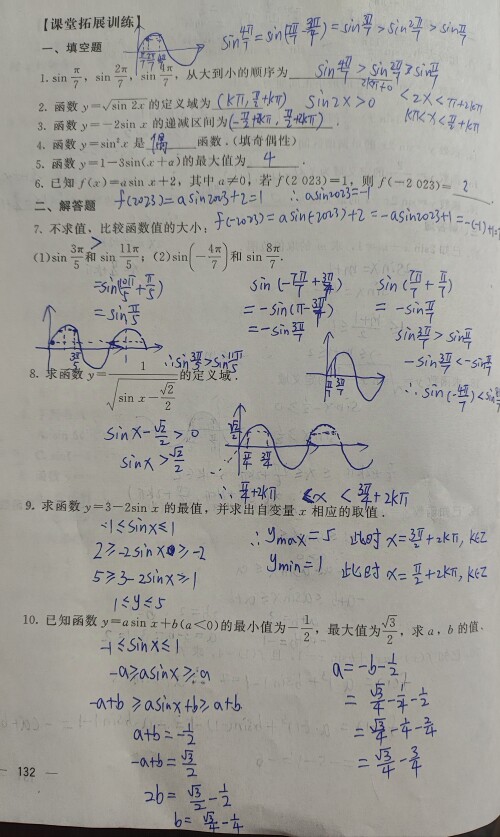 【课堂拓展训练】
sin4π/7=sin(7π/7-3π/7)=sin3π/7>sin2π/7>sinπ/7
一、填空题
1. sin π/7, sin 2π/7, sin 4π/7, 从大到小的顺序为 sin4π/7>sin2π/7>sinπ/7
2. 函数 y=√sin 2x 的定义域为 (kπ, π/2+kπ) sin2x>0 2kπ+0<2x<π+2kπ
3. 函数 y=-2sin x 的递减区间为 (-π/2+2kπ, π/2+2kπ). kπ<x<π/2+kπ
4. 函数 y=sin²x 是 偶 函数.(填奇偶性)
5. 函数 y=1-3sin(x+a)的最大值为 4.
6. 已知 f(x)=asin x+2, 其中 a≠0, 若 f(2 023)=1, 则 f(-2 023)= 2
二、解答题
f(2023)=asin2023+2=1 ∴asin2023=-1
f(-2023)=asin(-2023)+2=-asin2023+1=-(-1)+1=2
7. 不求值, 比较函数值的大小:
(1)sin 3π/5 和 sin 11π/5; (2)sin(-4π/7)和 sin 8π/7.
>
=sin(10π/5+π/5) sin(-7π/7+3π/7) sin(7π/7+π/7)
=sinπ/5 =-sin(π-3π/7) =-sinπ/7
=-sin3π/7 sin3π/7>sinπ/7
-sin3π/7<-sinπ/7
∴sin3π/5>sin11π/5 ∴sin(-4π/7)<sin
8. 求函数 y=1/√(sin x-√2/2) 的定义域.
sinx-√2/2>0
sinx>√2/2
∴π/4+2kπ<x<3π/4+2kπ
9. 求函数 y=3-2sin x 的最值, 并求出自变量 x 相应的取值.
-1≤sinx≤1 ∴ymax=5 此时x=3π/2+2kπ,k∈Z
2≥-2sinx≥-2 ymin=1 此时x=π/2+2kπ,k∈Z
5≥3-2sinx≥1
1≤y≤5
10. 已知函数 y=asin x+b(a<0)的最小值为-1/2, 最大值为√3/2, 求 a, b 的值.
-1≤sinx≤1
-a≥asinx≥a
-a+b≥asinx+b≥a+b
a+b=-1/2
-a+b=√3/2
2b=√3/2-1/2
b=√3/4-1/4
a=-b-1/2
=√3/4-1/4-1/2
=√3/4-1/4-2/4
=√3/4-3/4
132